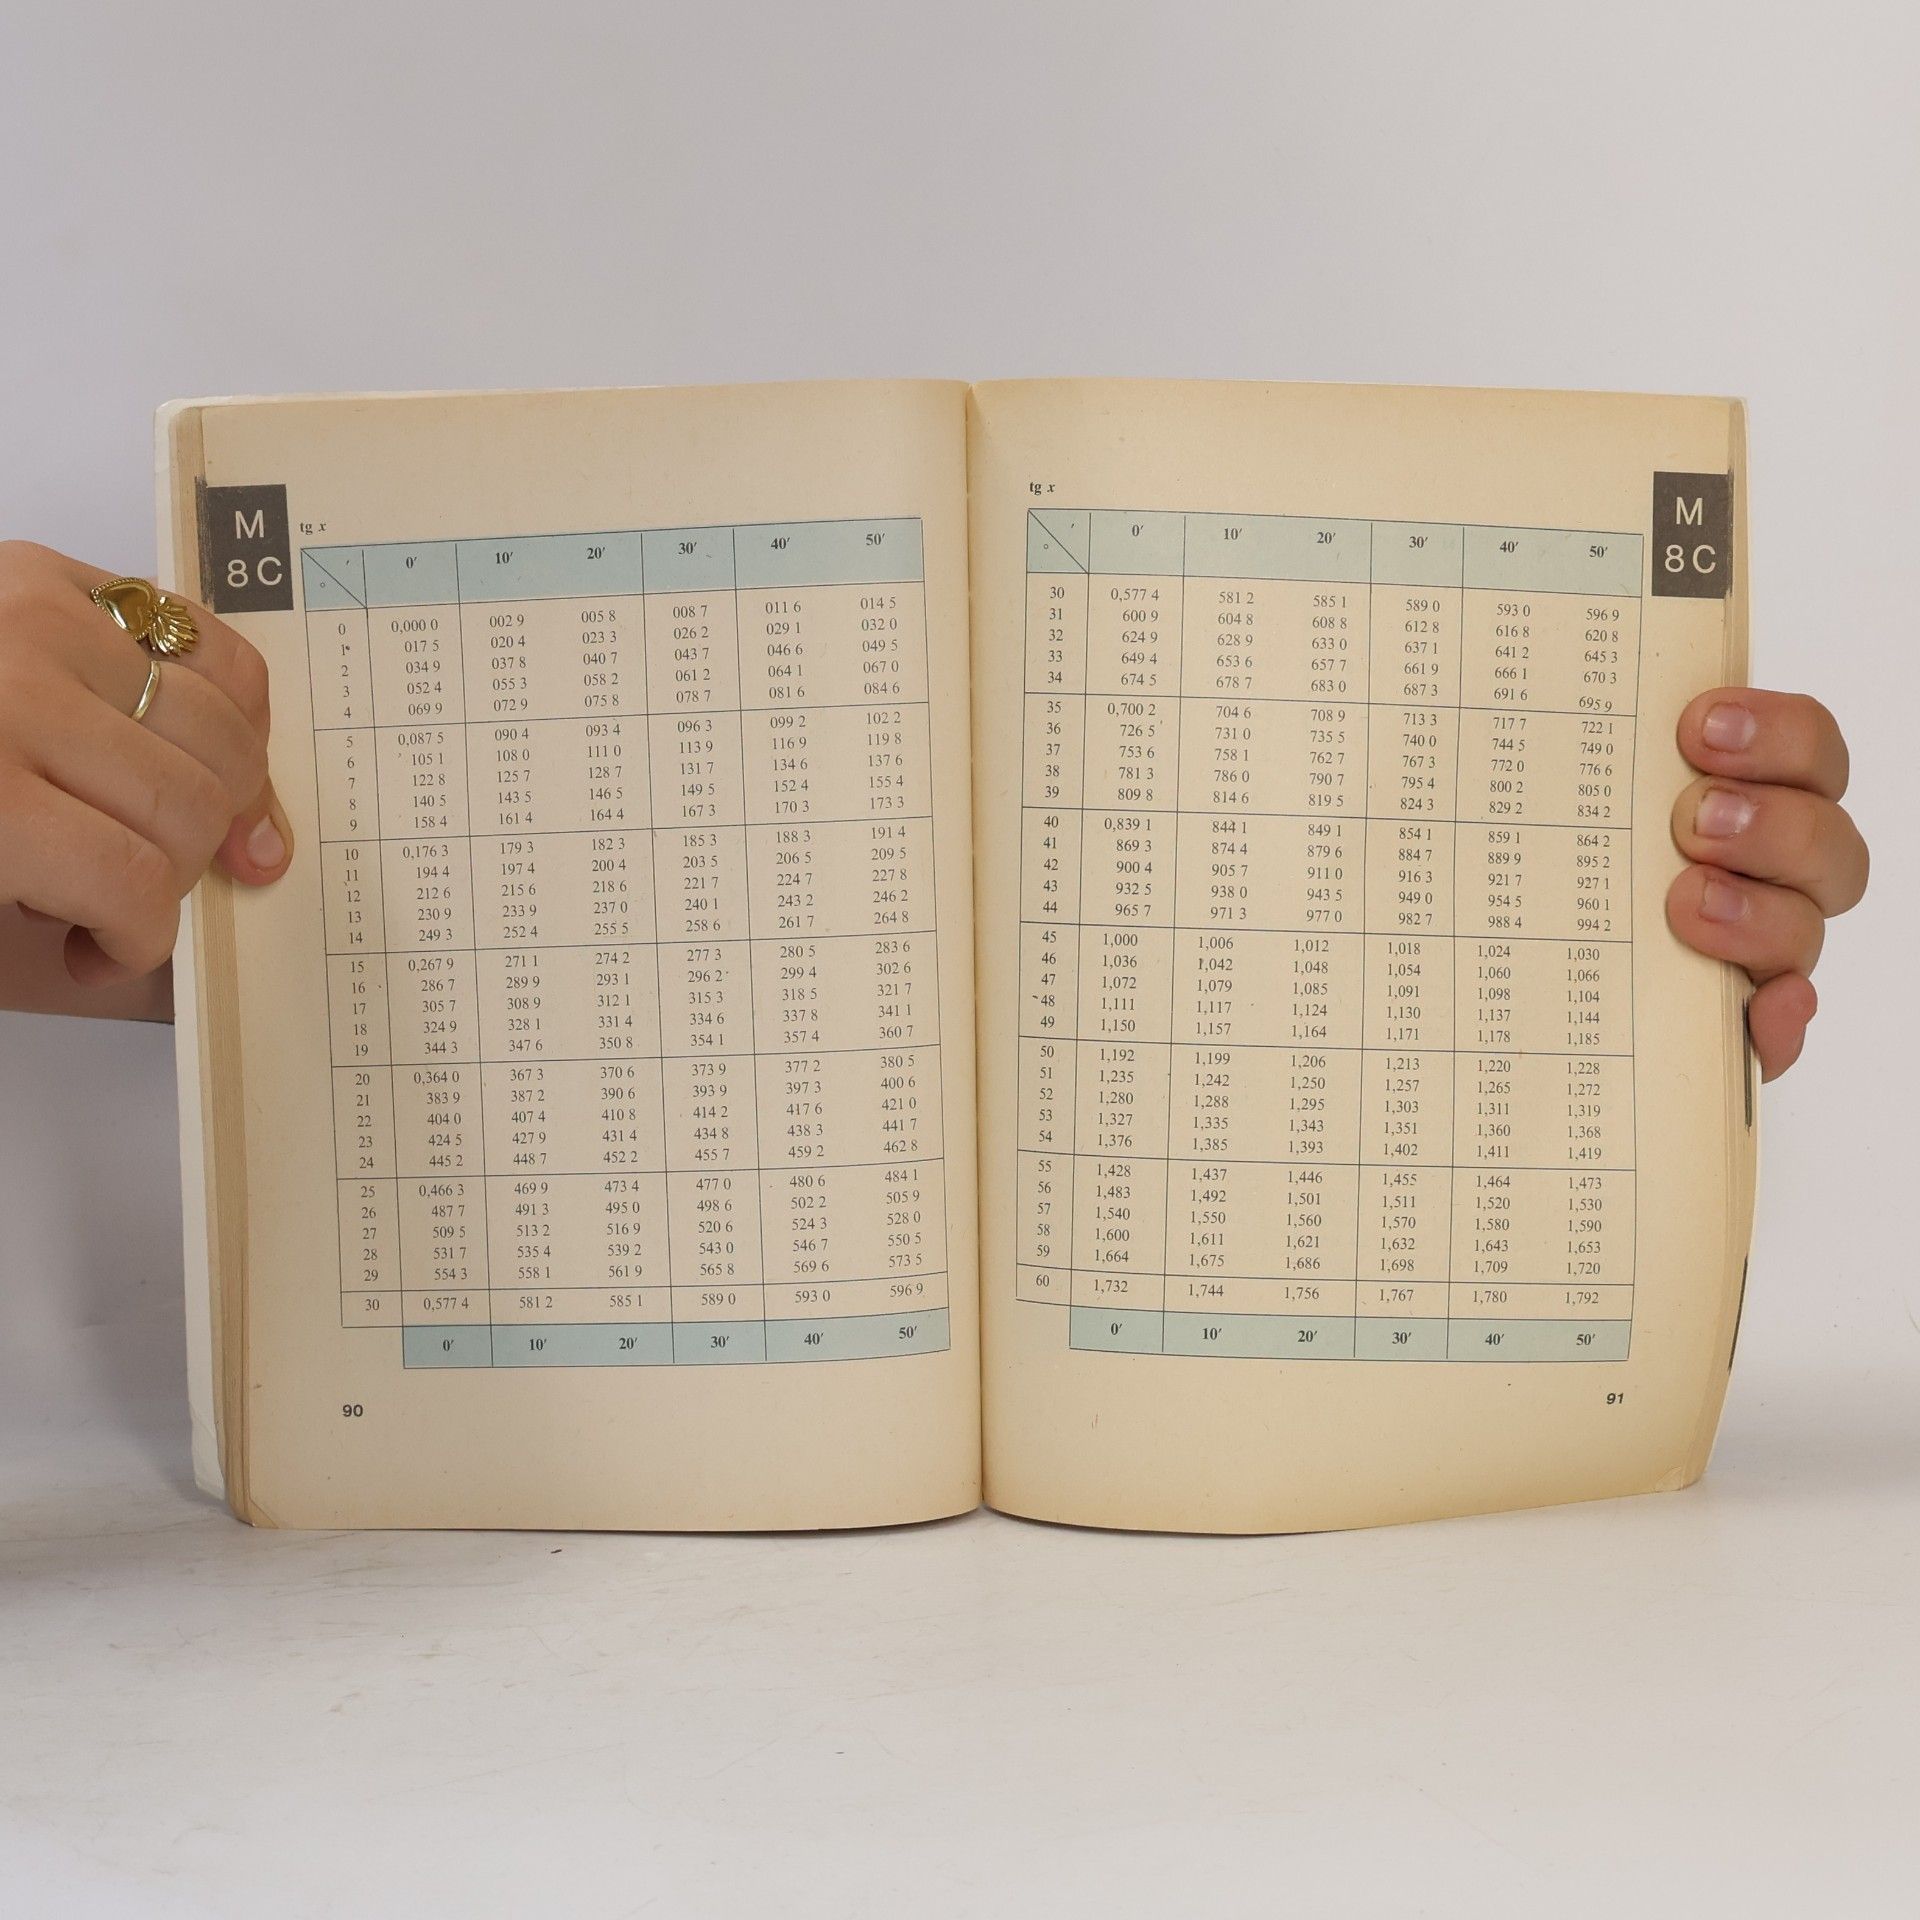 M
8C
tg x
° ′ 0′ 10′ 20′ 30′ 40′ 50′
0 0,000 0 002 9 005 8 008 7 011 6 014 5
1 017 5 020 4 023 3 026 2 029 1 032 0
2 034 9 037 8 040 7 043 7 046 6 049 5
3 052 4 055 3 058 2 061 2 064 1 067 0
4 069 9 072 9 075 8 078 7 081 6 084 6
5 0,087 5 090 4 093 4 096 3 099 2 102 2
6 105 1 108 0 111 0 113 9 116 9 119 8
7 122 8 125 7 128 7 131 7 134 6 137 6
8 140 5 143 5 146 5 149 5 152 4 155 4
9 158 4 161 4 164 4 167 3 170 3 173 3
10 0,176 3 179 3 182 3 185 3 188 3 191 4
11 194 4 197 4 200 4 203 5 206 5 209 5
12 212 6 215 6 218 6 221 7 224 7 227 8
13 230 9 233 9 237 0 240 1 243 2 246 2
14 249 3 252 4 255 5 258 6 261 7 264 8
15 0,267 9 271 1 274 2 277 3 280 5 283 6
16 286 7 289 9 293 1 296 2 299 4 302 6
17 305 7 308 9 312 1 315 3 318 5 321 7
18 324 9 328 1 331 4 334 6 337 8 341 1
19 344 3 347 6 350 8 354 1 357 4 360 7
20 0,364 0 367 3 370 6 373 9 377 2 380 5
21 383 9 387 2 390 6 393 9 397 3 400 6
22 404 0 407 4 410 8 414 2 417 6 421 0
23 424 5 427 9 431 4 434 8 438 3 441 7
24 445 2 448 7 452 2 455 7 459 2 462 8
25 0,466 3 469 9 473 4 477 0 480 6 484 1
26 487 7 491 3 495 0 498 6 502 2 505 9
27 509 5 513 2 516 9 520 6 524 3 528 0
28 531 7 535 4 539 2 543 0 546 7 550 5
29 554 3 558 1 561 9 565 8 569 6 573 5
30 0,577 4 581 2 585 1 589 0 593 0 596 9
0′ 10′ 20′ 30′ 40′ 50′
90
M
8C
tg x
° ′ 0′ 10′ 20′ 30′ 40′ 50′
30 0,577 4 581 2 585 1 589 0 593 0 596 9
31 600 9 604 8 608 8 612 8 616 8 620 8
32 624 9 628 9 633 0 637 1 641 2 645 3
33 649 4 653 6 657 7 661 9 666 1 670 3
34 674 5 678 7 683 0 687 3 691 6 695 9
35 0,700 2 704 6 708 9 713 3 717 7 722 1
36 726 5 731 0 735 5 740 0 744 5 749 0
37 753 6 758 1 762 7 767 3 772 0 776 6
38 781 3 786 0 790 7 795 4 800 2 805 0
39 809 8 814 6 819 5 824 3 829 2 834 2
40 0,839 1 844 1 849 1 854 1 859 1 864 2
41 869 3 874 4 879 6 884 7 889 9 895 2
42 900 4 905 7 911 0 916 3 921 7 927 1
43 932 5 938 0 943 5 949 0 954 5 960 1
44 965 7 971 3 977 0 982 7 988 4 994 2
45 1,000 1,006 1,012 1,018 1,024 1,030
46 1,036 1,042 1,048 1,054 1,060 1,066
47 1,072 1,079 1,085 1,091 1,098 1,104
48 1,111 1,117 1,124 1,130 1,137 1,144
49 1,150 1,157 1,164 1,171 1,178 1,185
50 1,192 1,199 1,206 1,213 1,220 1,228
51 1,235 1,242 1,250 1,257 1,265 1,272
52 1,280 1,288 1,295 1,303 1,311 1,319
53 1,327 1,335 1,343 1,351 1,360 1,368
54 1,376 1,385 1,393 1,402 1,411 1,419
55 1,428 1,437 1,446 1,455 1,464 1,473
56 1,483 1,492 1,501 1,511 1,520 1,530
57 1,540 1,550 1,560 1,570 1,580 1,590
58 1,600 1,611 1,621 1,632 1,643 1,653
59 1,664 1,675 1,686 1,698 1,709 1,720
60 1,732 1,744 1,756 1,767 1,780 1,792
0′ 10′ 20′ 30′ 40′ 50′
91